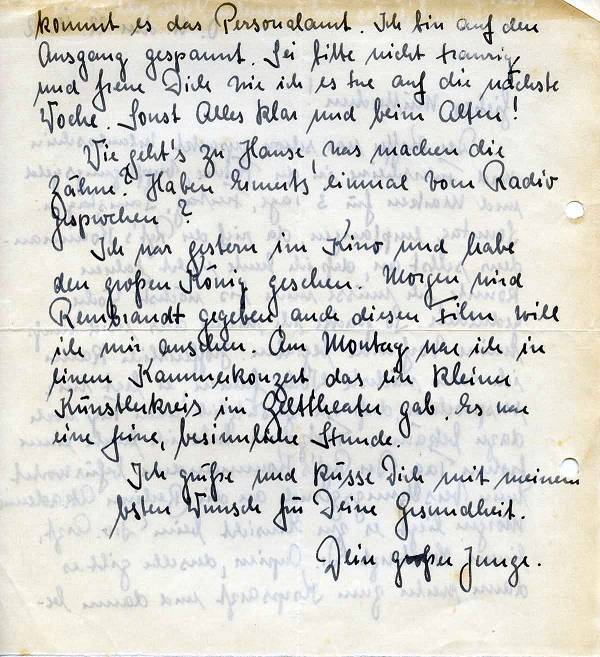 kommt es das Personalamt. Ich bin auf den
Ausgang gespannt. Sei bitte nicht traurig
und freue Dich wie ich es tue auf die nächste
Woche. Sonst Alles klar und beim Alten!
Wie geht's zu Hause, was machen die
Zähne? Haben einmal vom Radio
gesprochen?
Ich war gestern im Kino und habe
den großen König gesehen. Morgen wird
Rembrandt gegeben auch diesen Film will
ich mir ansehen. Am Montag war ich in
einem Kammerkonzert das ein kleiner
Künstlerkreis im Zelttheater gab. Es war
eine feine, besinnliche Stunde.
Ich grüße und küsse Dich mit meinem
besten Wunsch für Deine Gesundheit.
Dein großer Junge.